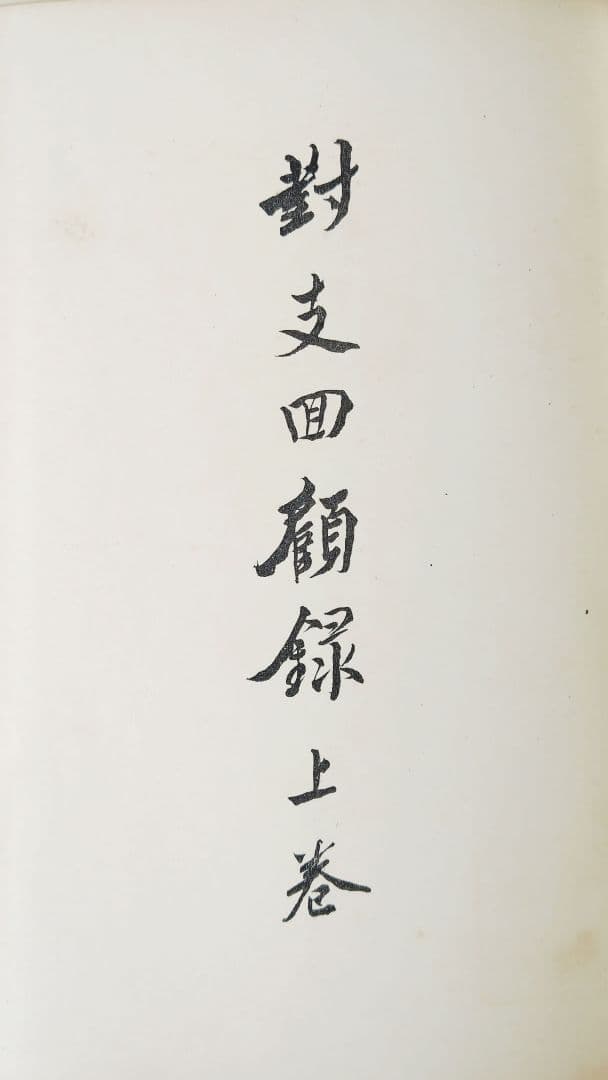 對支回顧録上卷